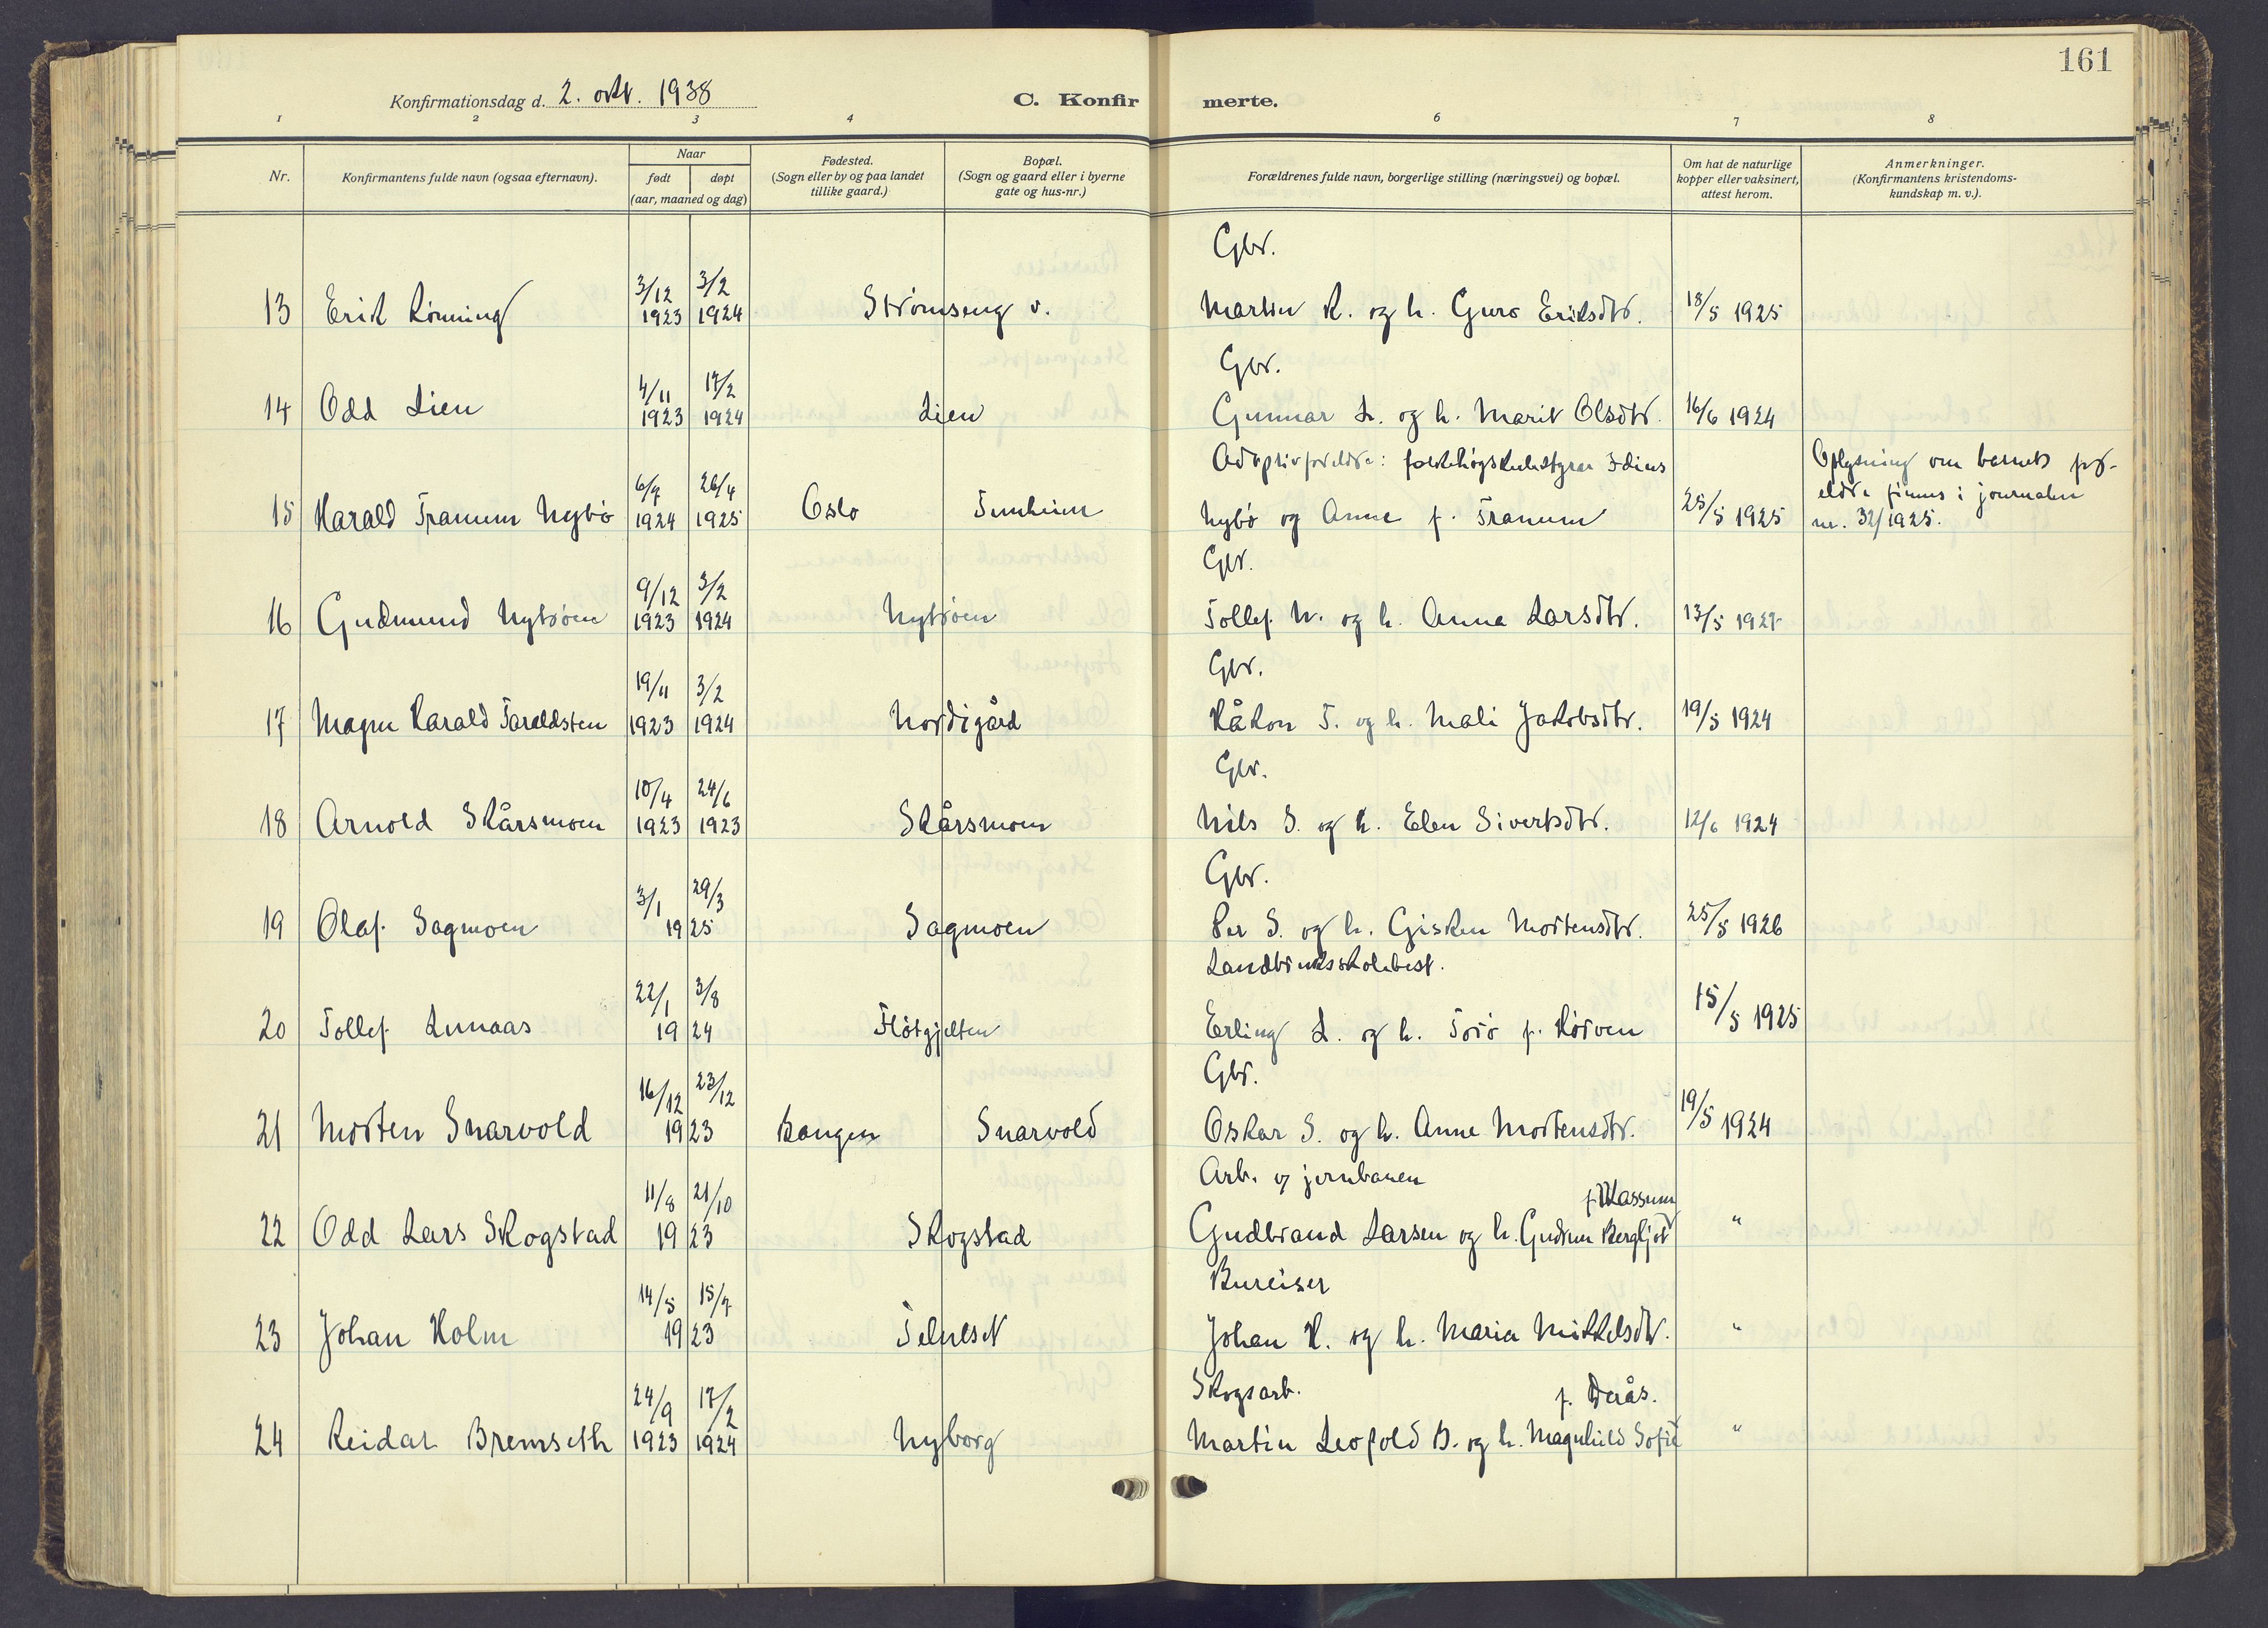 161
Konfirmationsdag d. 2. okt. 1938
C. Konfirmerte.
1 2 3 4 6 7 8
Nr.
Konfirmantens fulde navn (ogsaa efternavn).
Naar
født døpt
(aar, maaned og dag)
Fødested.
(Sogn eller by og paa landet
tillike gaard.)
Bopæl.
(Sogn og gaard eller i byerne
gate og hus-nr.)
Forældrenes fulde navn, borgerlige stilling (næringsvei) og bopæl.
Om hat de naturlige
kopper eller vaksinert,
attest herom.
Anmerkninger.
(Konfirmantens kristendoms-
kundskap m. v.).
Gbr.
3/12 3/2
13 Erik Rønning 1923 1924 Strømseng v. Martin R. og h. Guro Eriksdtr. 18/5 1925
Gbr.
4/11 17/2
14 Odd Lien 1923 1924 Lien Gunnar L. og h. Marit Olsdtr. 16/6 1924
Adoptivforeldre: folkehøgskulestyrar Edins
6/7 26/4
15 Harald Tranum Nybø 1924 1925 Oslo Tunheim Nybø og Anne f. Tranum 25/5 1925
Oplysning om barnets for-
eldre finnes i journalen
nr. 32/1925.
Gbr.
9/12 3/2
16 Gudmund Nybrøen 1923 1924 Nybrøen Tollef N. og h. Anna Larsdtr. 13/5 1927
Gbr.
19/11 3/2
17 Magne Harald Taraldsten 1923 1924 Nordigård Håkon T. og h. Mali Jakobsdtr. 19/5 1924
Gbr.
10/4 24/6
18 Arnold Skårsmoen 1923 1923 Skårsmoen Nils S. og h. Elen Sivertsdtr. 12/6 1924
Gbr.
3/1 29/3
19 Olaf Sagmoen 1925 Sagmoen Per S. og h. Gisken Mortensdtr. 25/5 1926
Landbruksskolebest.
22/1 3/8
20 Tollef Lunaas 1924 Fløtgjelten Erling L. og h. Torø f. Rørven 15/5 1925
Gbr.
16/12 23/12
21 Morten Snarvold 1923 Bangen Snarvold Oskar S. og h. Anne Mortensdtr. 19/5 1924
Arb. v jernbanen
11/8 21/10 f. Klassum
22 Odd Lars Skogstad 1923 Skogstad Gudbrand Larsen og h. Gudrun Bergljot "
Bureiser
14/5 15/7
23 Johan Holm 1923 Telneset Johan H. og h. Maria Mikkelsdtr. "
Skogsarb. f. Daås.
24/9 17/2
24 Reidar Bremseth 1923 1924 Nyborg Martin Leopold B. og h. Magnhild Sofie "